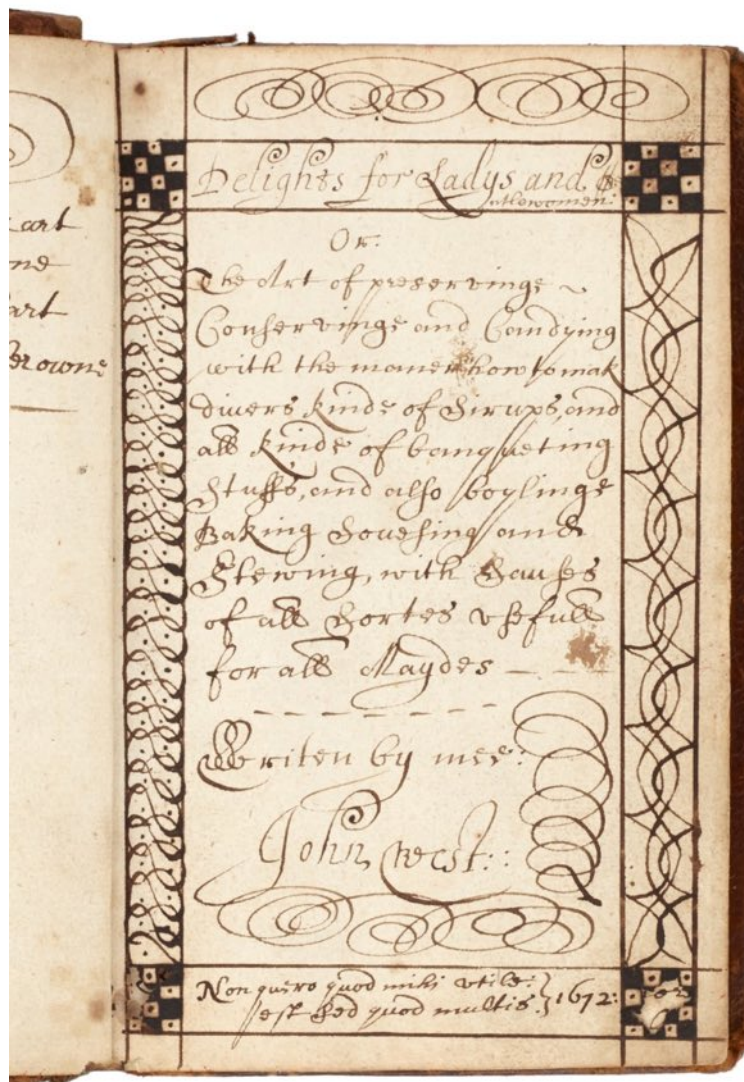 cart
ne
art
er owne
Delights for Ladys and Ge
ntlewomen:
Or:
The Art of preservinge ~
Conservinge and Candying
with the maner how to mak
divers kinde of Sirups, and
all kinde of banqueting
stuffs, and also boylinge
Baking Sousing and
Stewing, with Sauses
of all Sortes usefull
for all Maydes
Writen by mee:
John West::
Non quero quod mihi utile:} 1672:
est sed quod multis.